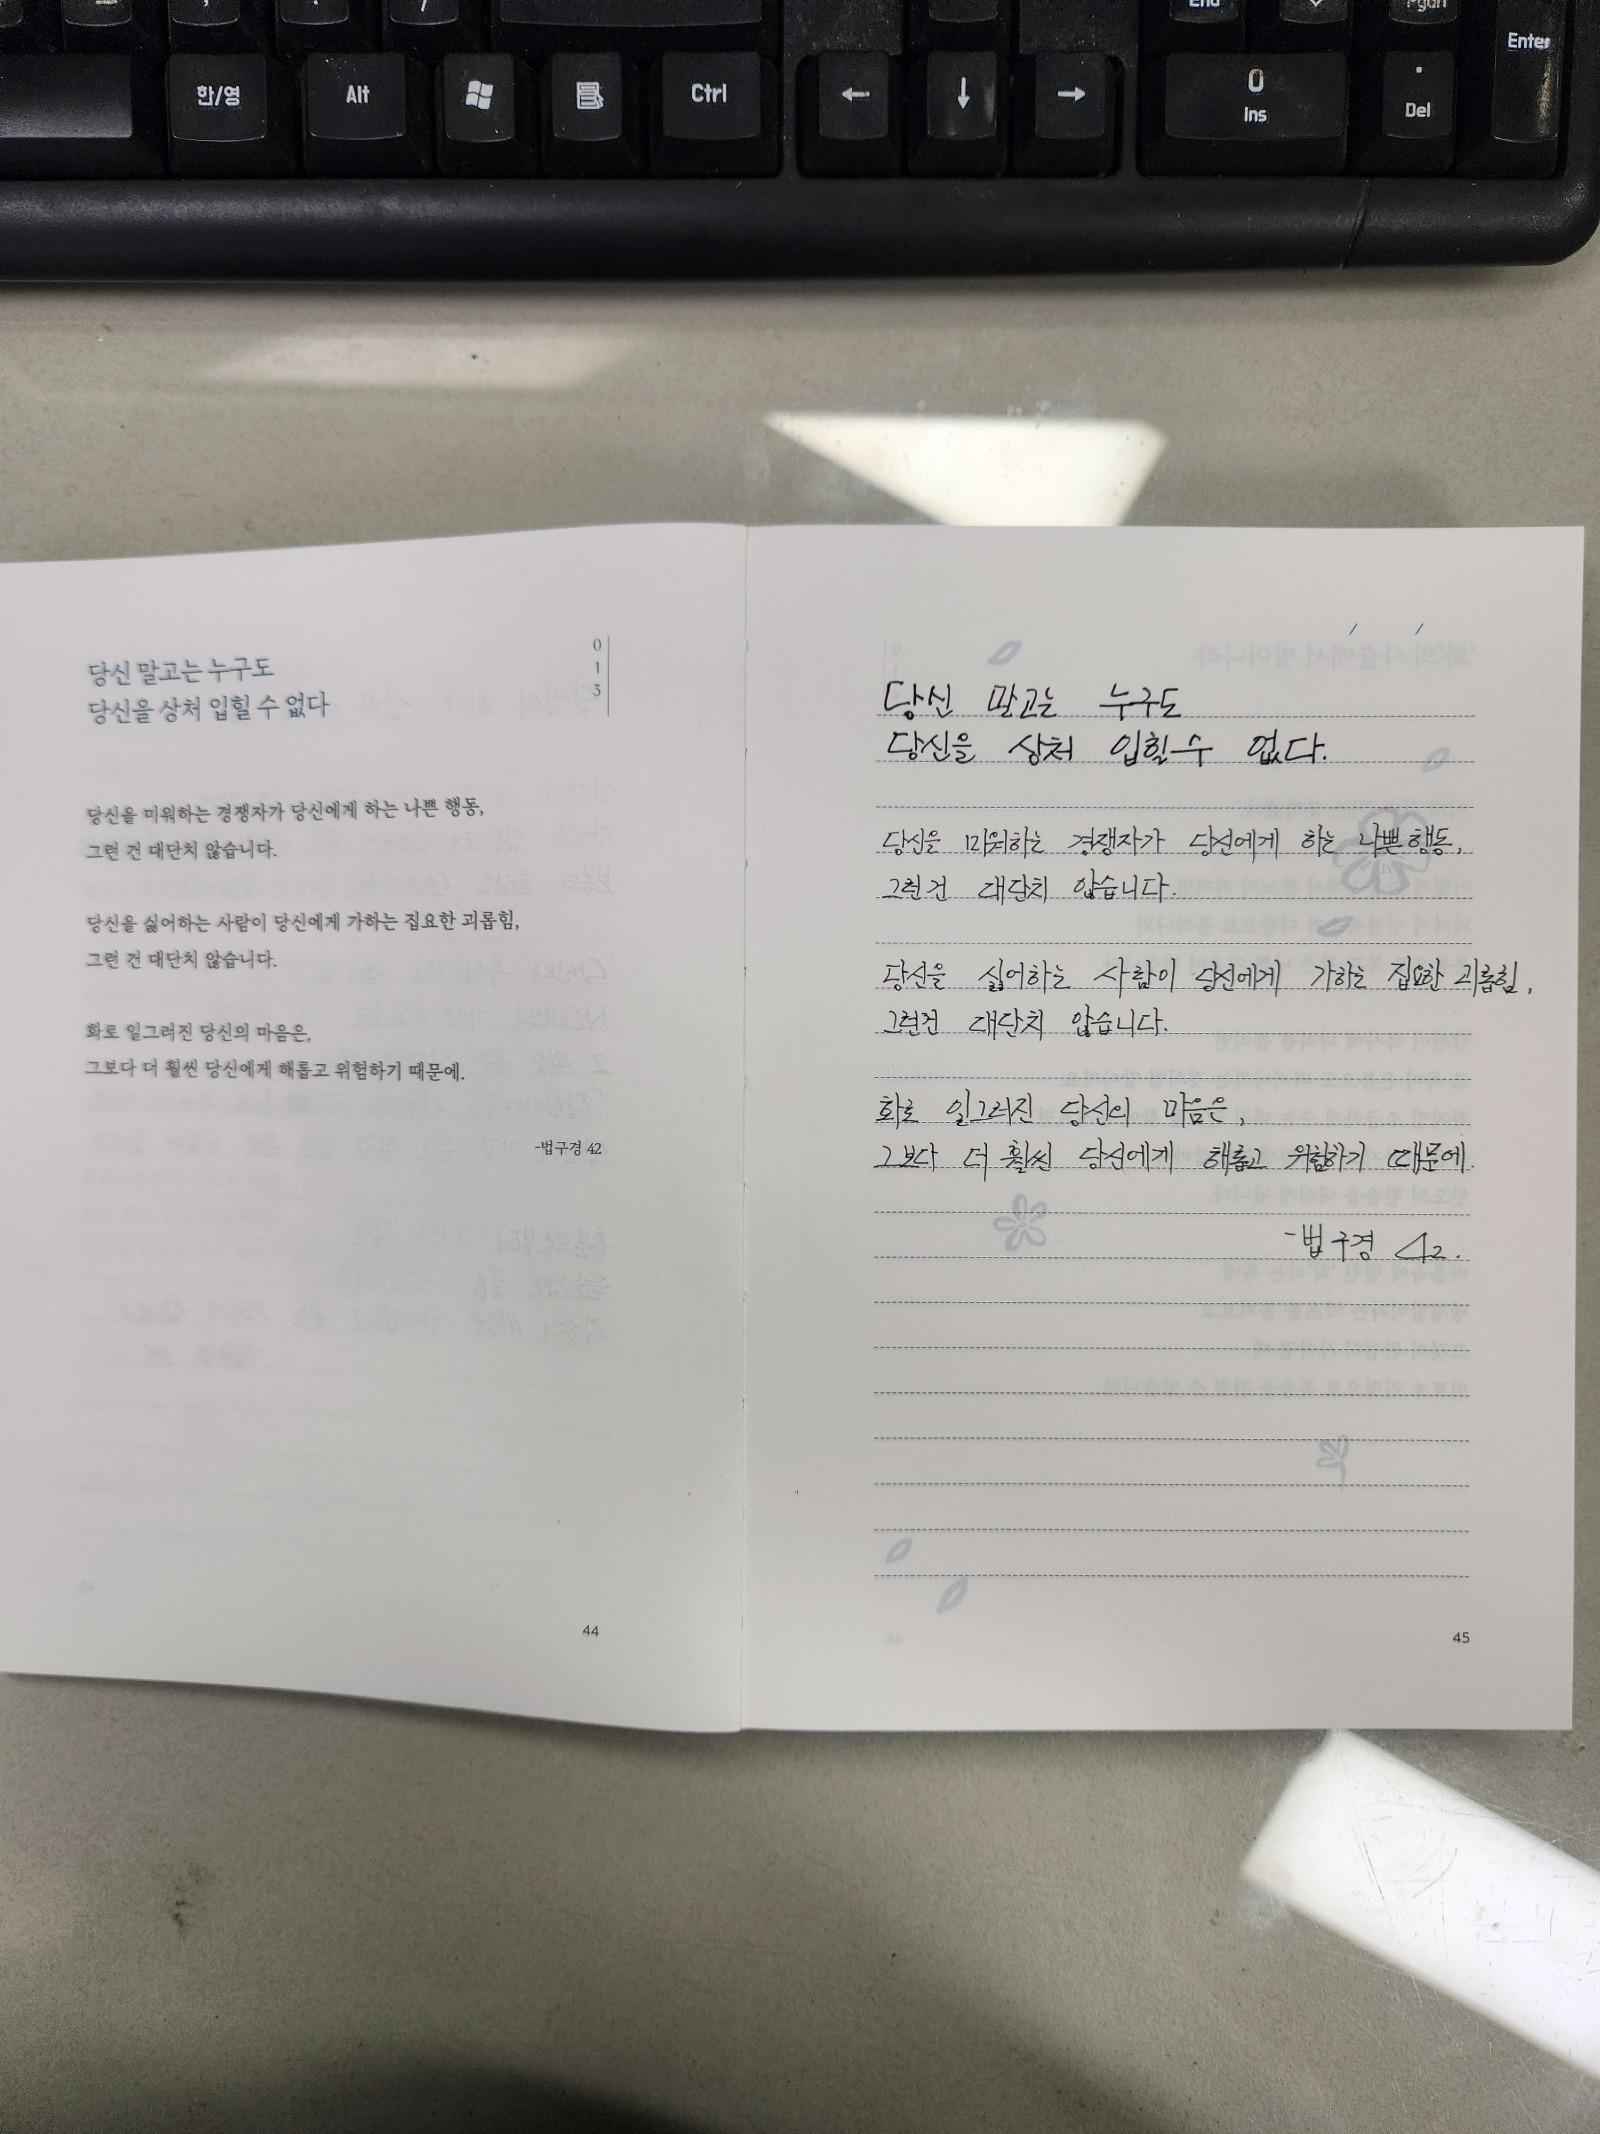 End
PgDn
Enter
한/영
Alt
Ctrl
←
↓
→
0
Ins
.
Del
0
1
3
당신 말고는 누구도
당신을 상처 입힐 수 없다
당신을 미워하는 경쟁자가 당신에게 하는 나쁜 행동,
그런 건 대단치 않습니다.
당신을 싫어하는 사람이 당신에게 가하는 집요한 괴롭힘,
그런 건 대단치 않습니다.
화로 일그러진 당신의 마음은,
그보다 더 훨씬 당신에게 해롭고 위험하기 때문에.
-법구경 42
44
당신 말고는 누구도
당신을 상처 입힐 수 없다.
당신을 미워하는 경쟁자가 당신에게 하는 나쁜 행동,
그런 건 대단치 않습니다.
당신을 싫어하는 사람이 당신에게 가하는 집요한 괴롭힘,
그런건 대단치 않습니다.
화로 일그러진 당신의 마음은,
그보다 더 훨씬 당신에게 해롭고 위험하기 때문에.
-법구경 42.
45